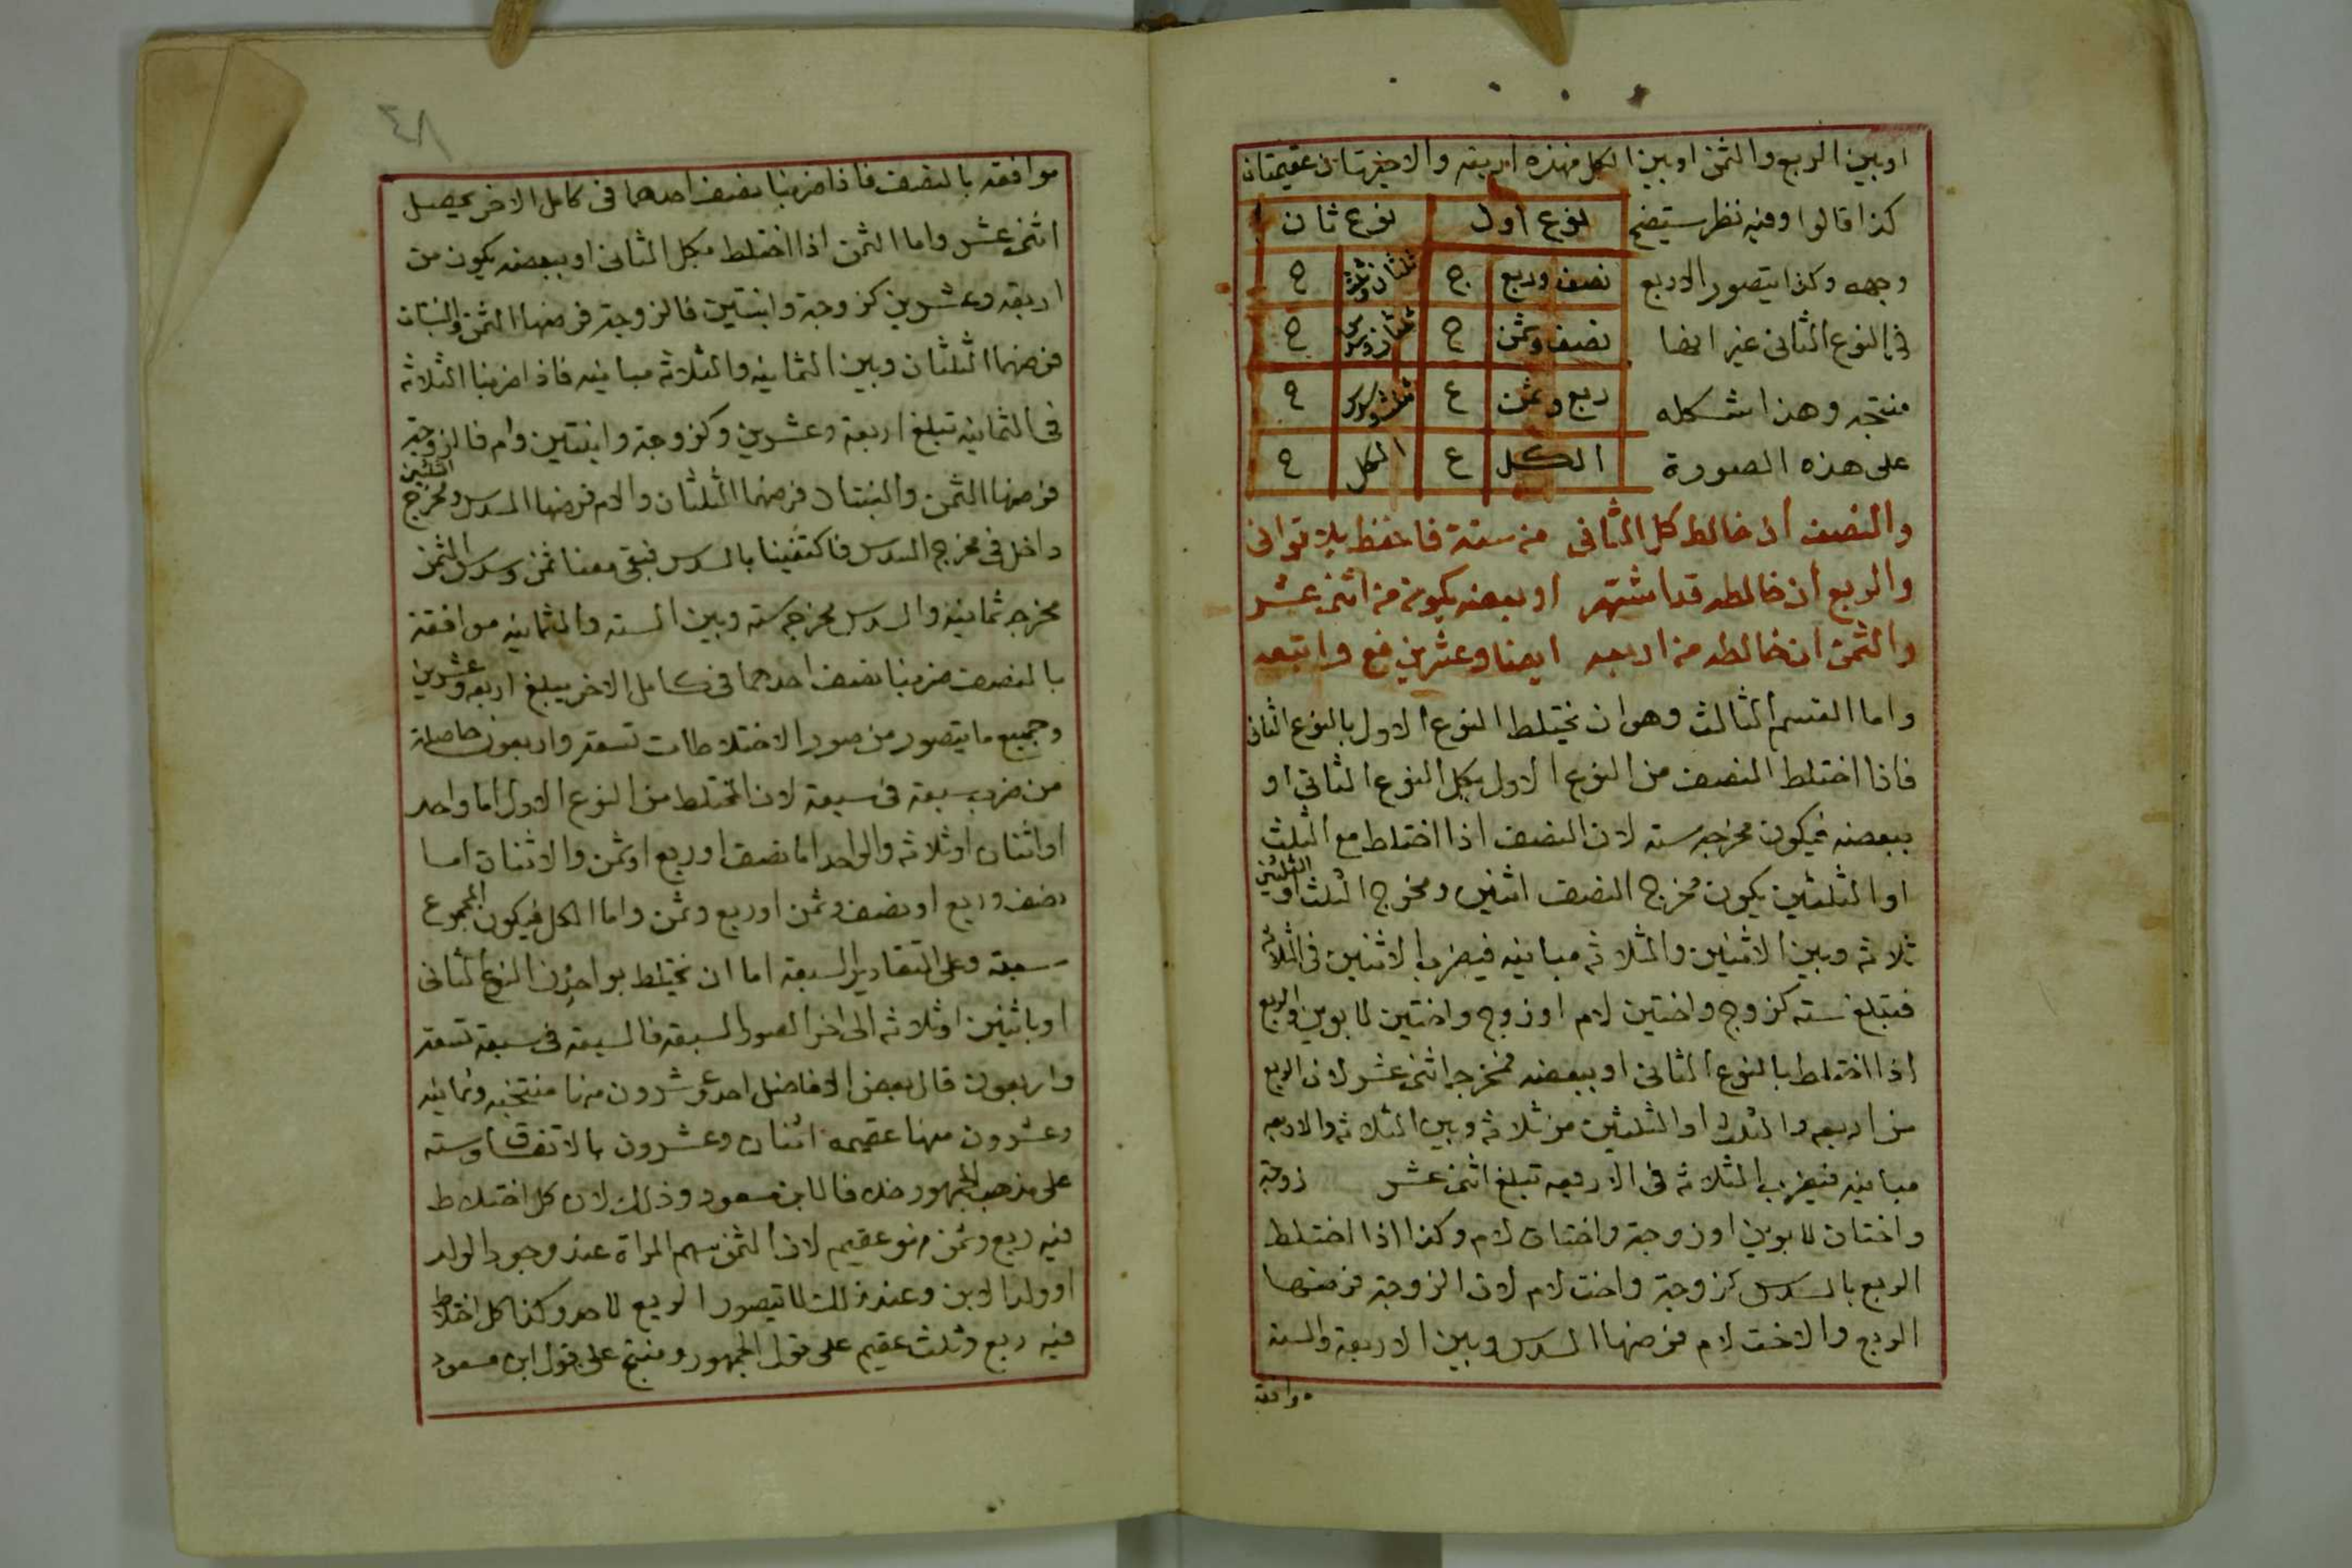 او بين الربع والثمن او بين الكل فهذه اربعة والاخيرتان عقيمتان
كذا قالوا وفيه نظر سيتضح
نوع أول نوع ثان
وجهه وكذا يتصور الاربع
نصف وربع ج ثلثان وثلث ج
في النوع الثاني غير انها
نصف وثمن ج ثلثان وسدس ج
منتجه وهذا شكله
ربع وثمن ع ثلث وسدس ج
على هذه الصورة
الكل ع الكل ج
والنصف ان خالط كل الثاني من ستة فاحفظ بلا تواني
والربع ان خالطه قد اشتهر او بعضه يكون من اثنى عشر
والثمن ان خالطه من اربعه ايضا وعشرين فع واتبعه
واما القسم الثالث وهو ان يختلط النوع الاول بالنوع الثانى
فاذا اختلط النصف من النوع الاول بكل النوع الثانى او
ببعضه فيكون مخرجه سته لان النصف اذا اختلط مع الثلث
او الثلثين يكون مخرج النصف اثنين ومخرج الثلث او الثلثين
ثلاثه وبين الاثنين والثلاثه مباينه فيضرب الاثنين فى الثلاثه
فتبلغ سته كزوج واختين لام او زوج واختين لابوين والربع
اذا اختلط بالنوع الثانى او ببعضه فمخرجه اثنى عشر لان الربع
من اربعه والثلث او الثلثين من ثلاثه وبين الثلاثه والاربعه
مباينه فيضرب الثلاثه فى الاربعه تبلغ اثنى عشر زوجة
واختان لابوين او زوجة واختان لام وكذا اذا اختلط
الربع بالسدس كزوجة واخت لام لان الزوجة فرضها
الربع والاخت لام فرضها السدس وبين الاربعة والستة
موافقة
موافقه بالنصف فاذا ضربنا نصف احدهما فى كامل الاخر يحصل
اثنى عشر واما الثمن اذا اختلط بكل الثانى او ببعضه يكون من
اربعه وعشرين كزوجة وابنتين فالزوجة فرضها الثمن والبنتان
فرضهما الثلثان وبين الثمانيه والثلاثه مباينه فاذا ضربنا الثلاثه
فى الثمانيه تبلغ اربعة وعشرين وكزوجة وابنتين وام فالزوجة
فرضها الثمن والبنتان فرضهما الثلثان والام فرضها السدس ومخرج الثلثين
داخل فى مخرج السدس فاكتفينا بالسدس فبقى معنا ثمن وسدس الثمن
مخرجه ثمانيه والسدس مخرجه سته وبين السته والثمانيه موافقة
بالنصف ضربنا نصف احدهما فى كامل الاخر يبلغ اربعه وعشرين
وجميع ما يتصور من صور الاختلاطات تسعة واربعون حاصلة
من ضرب سبعة فى سبعة لان المختلط من النوع الاول اما واحد
او اثنان او ثلاثه والواحد اما نصف او ربع او ثمن والاثنان اما
نصف وربع او نصف وثمن او ربع وثمن واما الكل فيكون المجموع
سبعة وعلى التقادير السبعة اما ان يختلط بواحد من النوع الثانى
او باثنين او ثلاثه الى اخر الصور السبعه فالسبعه فى سبعة تسعة
واربعون قال بعض الافاضل احد وعشرون منها منتجه وثمانيه
وعشرون منها عقيمه اثنان وعشرون بالاتفاق وسته
على مذهب الجمهور خلافا لابن مسعود وذلك لان كل اختلاط
فيه ربع وثمن فهو عقيم لان الثمن سهم المراة عند وجود الولد
او ولد الابن وعند ذلك لا يتصور الربع لاحد وكذا كل اختلاط
فيه ربع وثلث عقيم على قول الجمهور ومنتج على قول ابن مسعود